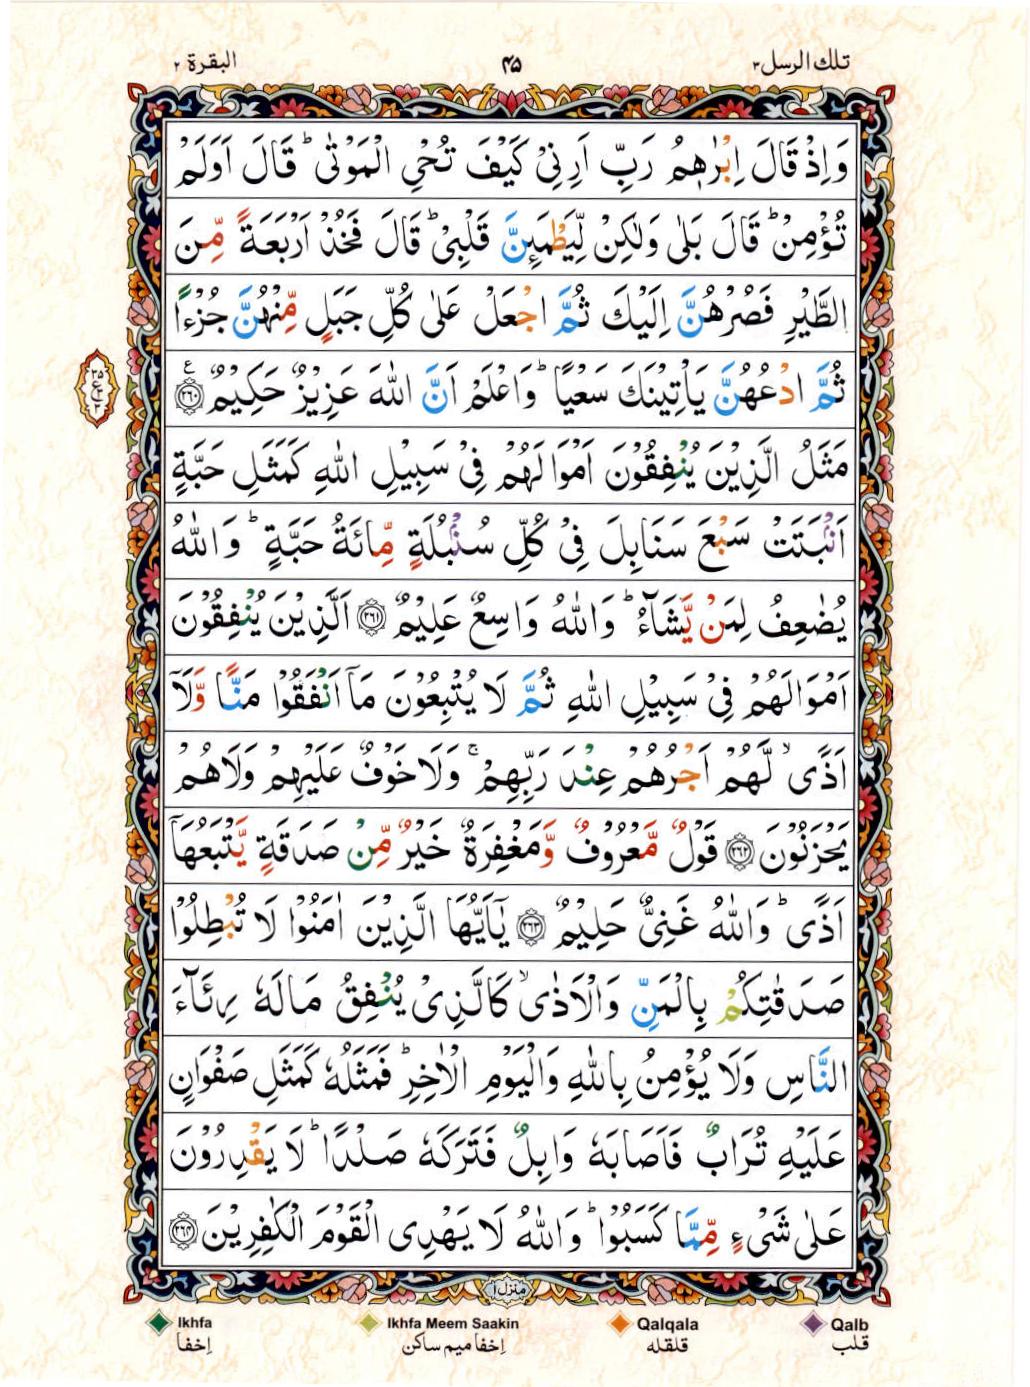 تلك الرسل ٣
۴۵
البقرة ٢
وَاِذْ قَالَ اِبْرٰهٖمُ رَبِّ اَرِنِیْ كَیْفَ تُحْیِ الْمَوْتٰیؕ قَالَ اَوَلَمْ
تُؤْمِنْؕ قَالَ بَلٰی وَلٰكِنْ لِّیَطْمَىِٕنَّ قَلْبِیْؕ قَالَ فَخُذْ اَرْبَعَةً مِّنَ
الطَّیْرِ فَصُرْهُنَّ اِلَیْكَ ثُمَّ اجْعَلْ عَلٰی كُلِّ جَبَلٍ مِّنْهُنَّ جُزْءًا
ثُمَّ ادْعُهُنَّ یَاْتِیْنَكَ سَعْیًاؕ وَاعْلَمْ اَنَّ اللّٰهَ عَزِیْزٌ حَكِیْمٌ ﴿۲۶۰﴾ ع
۳۵
ع
۳
۳
مَثَلُ الَّذِیْنَ یُنْفِقُوْنَ اَمْوَالَهُمْ فِیْ سَبِیْلِ اللّٰهِ كَمَثَلِ حَبَّةٍ
اَنْۢبَتَتْ سَبْعَ سَنَابِلَ فِیْ كُلِّ سُنْۢبُلَةٍ مِّائَةُ حَبَّةٍؕ وَاللّٰهُ
یُضٰعِفُ لِمَنْ یَّشَآءُؕ وَاللّٰهُ وَاسِعٌ عَلِیْمٌ ﴿۲۶۱﴾ اَلَّذِیْنَ یُنْفِقُوْنَ
اَمْوَالَهُمْ فِیْ سَبِیْلِ اللّٰهِ ثُمَّ لَا یُتْبِعُوْنَ مَاۤ اَنْفَقُوْا مَنًّا وَّلَاۤ
اَذًیۙ لَّهُمْ اَجْرُهُمْ عِنْدَ رَبِّهِمْۚ وَلَا خَوْفٌ عَلَیْهِمْ وَلَا هُمْ
یَحْزَنُوْنَ ﴿۲۶۲﴾ قَوْلٌ مَّعْرُوْفٌ وَّمَغْفِرَةٌ خَیْرٌ مِّنْ صَدَقَةٍ یَّتْبَعُهَاۤ
اَذًیؕ وَاللّٰهُ غَنِیٌّ حَلِیْمٌ ﴿۲۶۳﴾ یٰۤاَیُّهَا الَّذِیْنَ اٰمَنُوْا لَا تُبْطِلُوْا
صَدَقٰتِكُمْ بِالْمَنِّ وَالْاَذٰیۙ كَالَّذِیْ یُنْفِقُ مَالَهٗ رِئَآءَ
النَّاسِ وَلَا یُؤْمِنُ بِاللّٰهِ وَالْیَوْمِ الْاٰخِرِؕ فَمَثَلُهٗ كَمَثَلِ صَفْوَانٍ
عَلَیْهِ تُرَابٌ فَاَصَابَهٗ وَابِلٌ فَتَرَكَهٗ صَلْدًاؕ لَا یَقْدِرُوْنَ
عَلٰی شَیْءٍ مِّمَّا كَسَبُوْاؕ وَاللّٰهُ لَا یَهْدِی الْقَوْمَ الْكٰفِرِیْنَ ﴿۲۶۴﴾
منزل ۱
Ikhfa
Ikhfa Meem Saakin
Qalqala
Qalb
اِخفا
اِخفا میم ساكن
قلقله
قلب